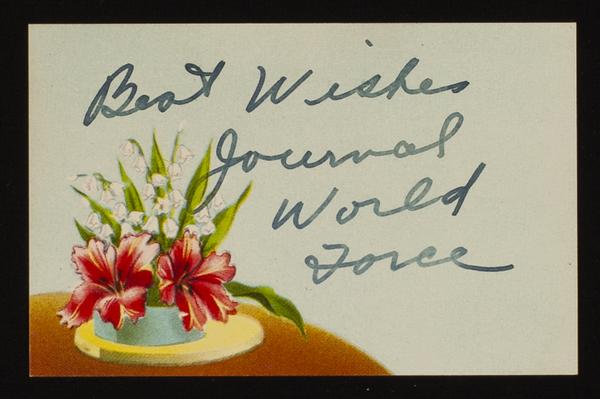 Best Wishes
Journal
World
Force